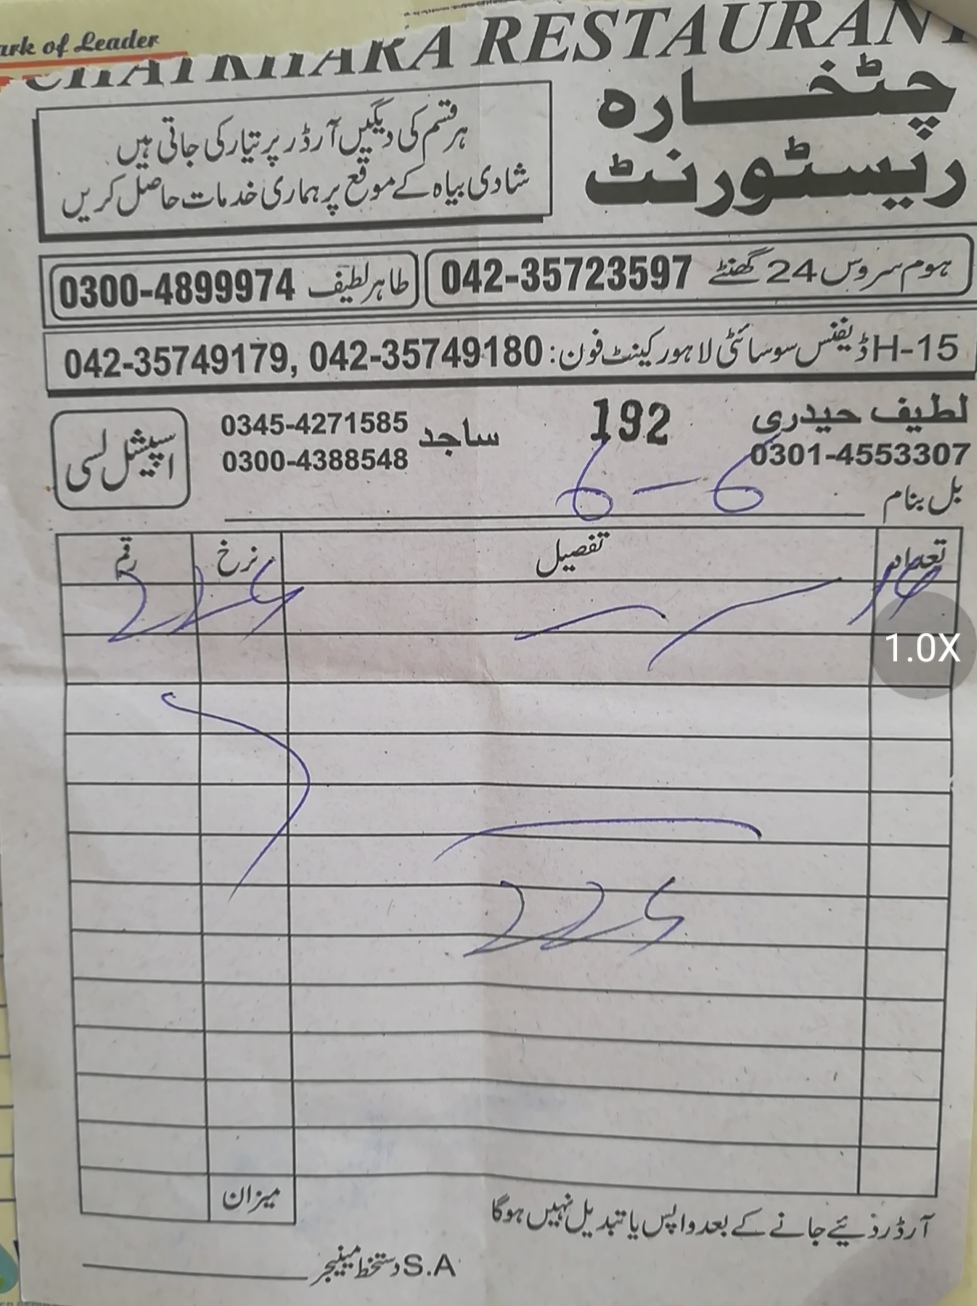 ark of Leader
CHATKHARA RESTAURANT
چٹخارہ
ریسٹورنٹ
ہر قسم کی دیگیں آرڈر پر تیار کی جاتی ہیں
شادی بیاہ کے موقع پر ہماری خدمات حاصل کریں
ہوم سروس 24 گھنٹے 042-35723597
طاہر لطیف 0300-4899974
H-15 ڈیفنس سوسائٹی لاہور کینٹ فون: 042-35749179, 042-35749180
لطیف حیدری 0301-4553307
192
ساجد 0345-4271585
0300-4388548
اسپیشل لسی
بل بنام 6-6
تعداد تفصیل نرخ رقم
225
225
میزان
آرڈر دئیے جانے کے بعد واپس یا تبدیل نہیں ہوگا
دستخط مینیجر S.A
1.0X